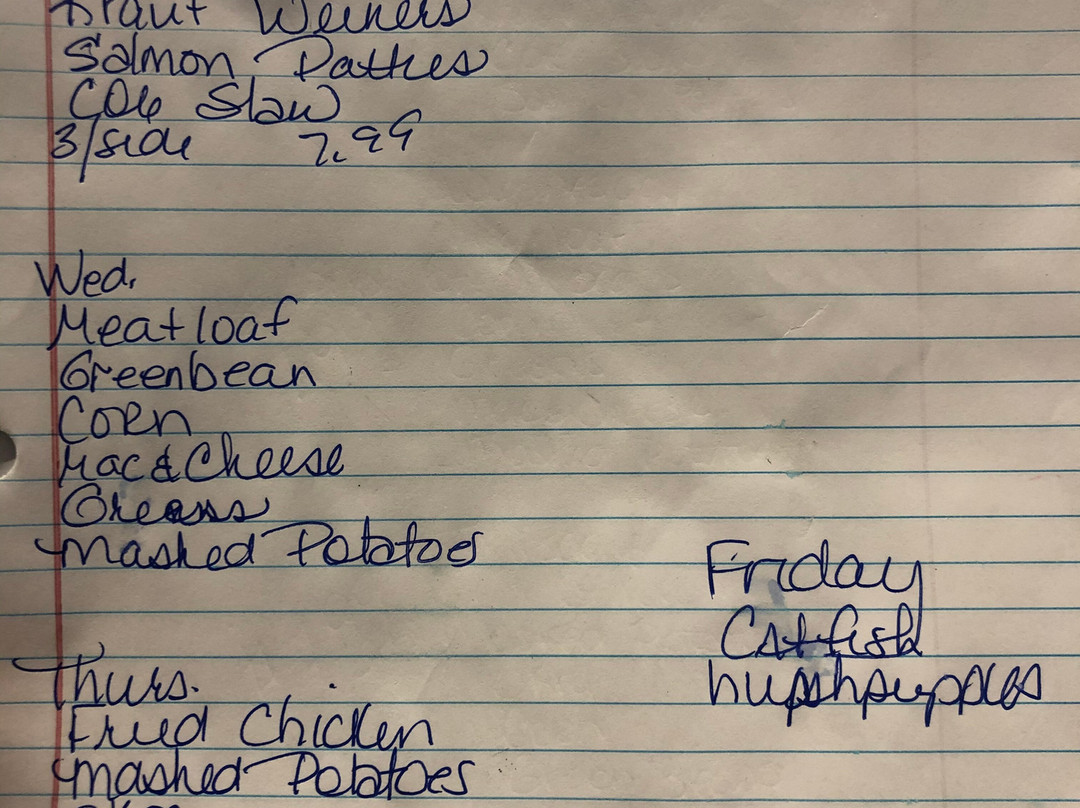 Kraut Weiners
Salmon Patties
Cole Slaw
3/side 7.99
Wed.
Meatloaf
Greenbean
Corn
Mac & Cheese
Greens
Mashed Potatoes
Thurs.
Fried Chicken
Mashed Potatoes
Friday
Catfish
hushpuppies